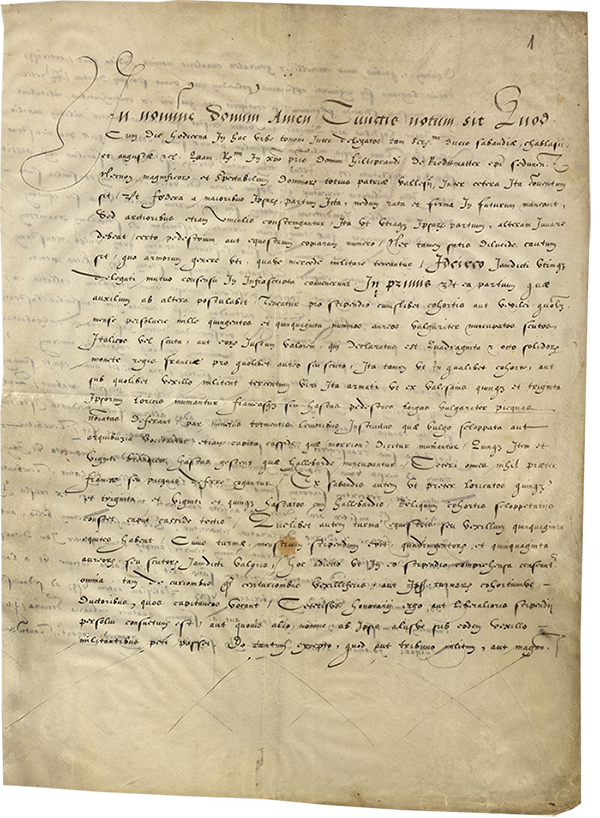 1
In nomine Domini Amen Cunctis notum sit Quod
Cum die hodierna In hac urbe tononi Inter delegatos tam ser.mi ducis sabaudiæ, chablasii,
et augustæ Quam R.mi In xpo pris domini hiltebrandi de Riedtmatter epi sedunen.
magnificorum et spectabilium dominorum totius patriæ vallesii, Inter cetera Ita conventum
sit / Ut fœdera a maioribus partium Icta, nedum rata et firma In futurum maneant,
Sed arctioribus etiam vinculis constringantur / Ita ut utraque Ipsarum partium, alteram Iuvare
debeat / certo pedestrium aut equestrium copiarum numero / Nec tamen satis dilucide cautum
sit / quo armorum genere uti, quave mercede militare teneantur / Idcirco Iamdicti utriusque
delegati mutuo consensu In Infrascripta convenerunt In primis Ut ea partium quæ
auxilium ab altera postulabit Teneatur pro stipendio cuiuslibet cohortis aut vexilli quolibet
mense persolvere mille quingentos et quinquaginta nummos aureos vulgariter nuncupatos scutos,
Italicos vel scuta, aut eorum Iustum valorem, qui declaratus est Quadraginta et octo solidorum
monete regis franciæ pro quolibet aureo seu scuto, Ita tamen ut In qualibet cohorte, aut
sub quolibet vexillo militent tercentum viri Ita armati ut ex valesanis quinque et triginta
Ipsorum loricis muniantur seu hastas pedestres longas vulgariter picquas
notatas deferant, par numerus tormentis levioribus Instructus quæ vulgo sclopputa aut
arquibuzia vocitantur, etiam capita casside quæ morrion dicitur muniantur / Quinque Item et
viginti hastas gestent quæ hallebarde nuncupantur / Ceteri omnes nihil præter
seu picquas deferre cogantur / Ex sabaudis autem ut preter loricatos quinque
et triginta, et viginti et quinque hastatos cum hallebardis, Reliquum cohortis scloppetariis
constet, caput casside tectis / Quelibet autem turma equestris seu vexillum quinquaginta
equites habeat / Cuius turmæ, menstruum stipendium erit, quadringentorum, et quinquaginta
aureorum seu scutorum Iamdicti valoris / hoc adiecto ut In eo stipendio comprehensa censeantur
omnia, tam de curionibus centurionibus vexilliferis, aut cohortumve
ductoribus, quos capitaneos vocant / Ceterisque honorariis ergo aut liberalioris stipendii
persolvi consuetum est, aut quovis alio nomine ab Ipsis aliisve sub eodem vexillo
militantibus peti posset Eo tantum excepto, quod aut tribuno militum, aut magno